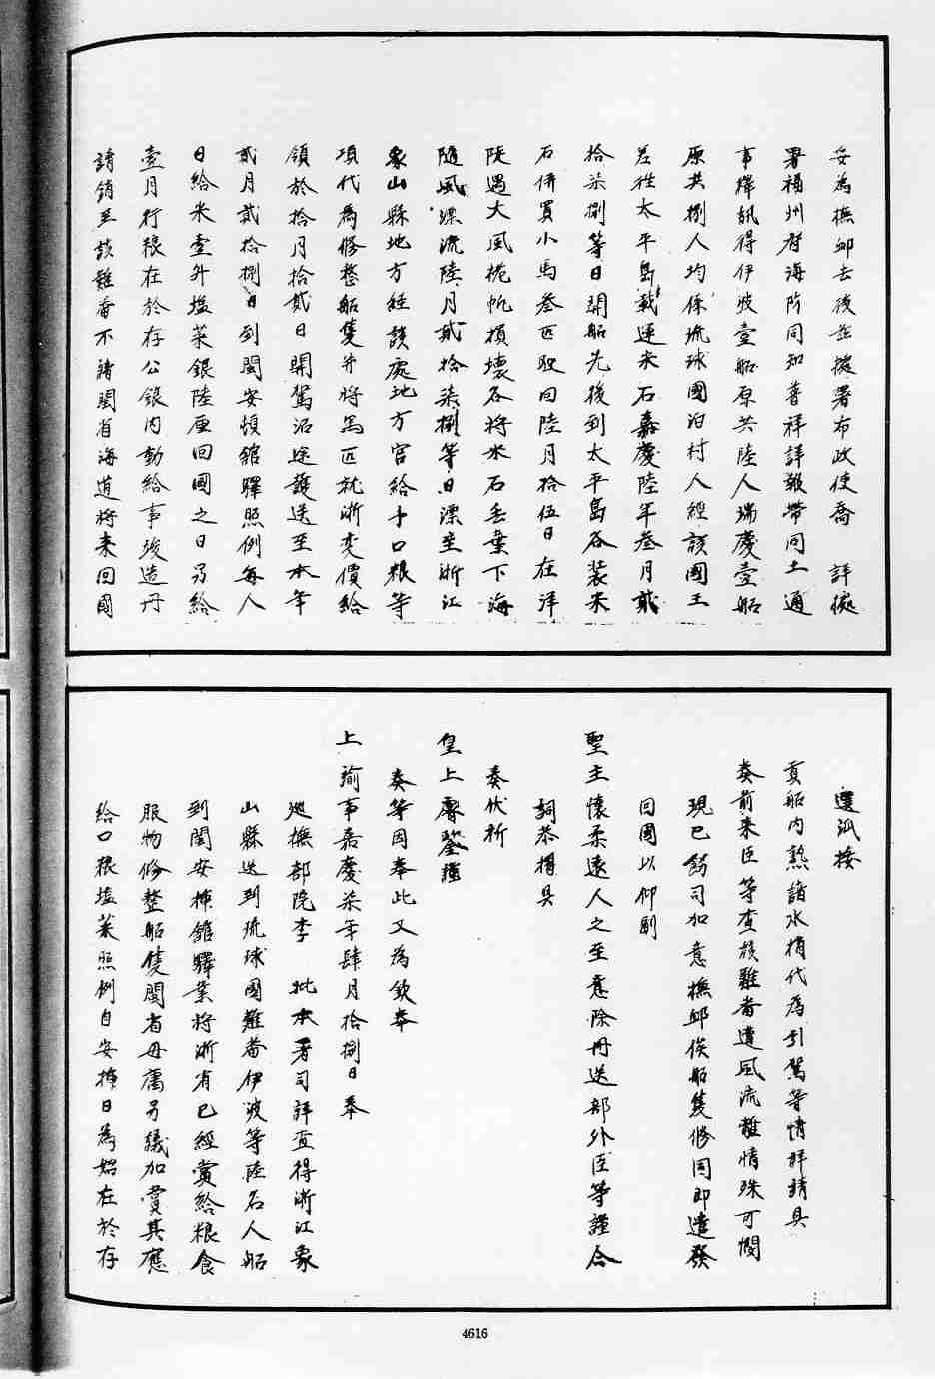 妥為撫卹去後茲據署布政使喬　詳據
署福州府海防同知普祥詳報帶同土通
事繹訊得伊波壹船原共陸人瑞慶壹船
原共捌人均係琉球國泊村人經該國王
差往太平島載運米石嘉慶陸年叁月貳
拾柒捌等日開船先後到太平島各裝米
石併買小馬叁匹駛回陸月拾伍日在洋
陡遇大風桅帆損壞各將米石丟棄下海
隨風漂流陸月貳拾柒捌等日漂至浙江
象山縣地方經該處地方官給予口糧等
項代為修整船隻并將馬匹就浙變價給
領於拾月拾貳日開駕沿途護送至本年
貳月貳拾捌日到閩安頓館驛照例每人
日給米壹升塩菜銀陸厘回國之日另給
壹月行粮在於存公銀內動給事竣造冊
請銷至該難番不諳閩省海道將來回國
選派接
貢船內熟諳水梢代為引駕等情詳請具
奏前來臣等查該難番遭風流離情殊可憫
現已飭司加意撫卹俟船隻修固即遣發
回國以仰副
聖主懷柔遠人之至意除冊送部外臣等謹合
詞恭摺具
奏伏祈
皇上睿鑒謹
奏等因奉此又為欽奉
上諭事嘉慶柒年肆月拾捌日奉
巡撫部院李　批本署司詳查得浙江象
山縣送到琉球國難番伊波等陸名人船
到閩安插館驛業將浙省已經賞給粮食
服物修整船隻閩省毋庸另議加賞其應
給口粮塩菜照例自安插日為始在於存
4616